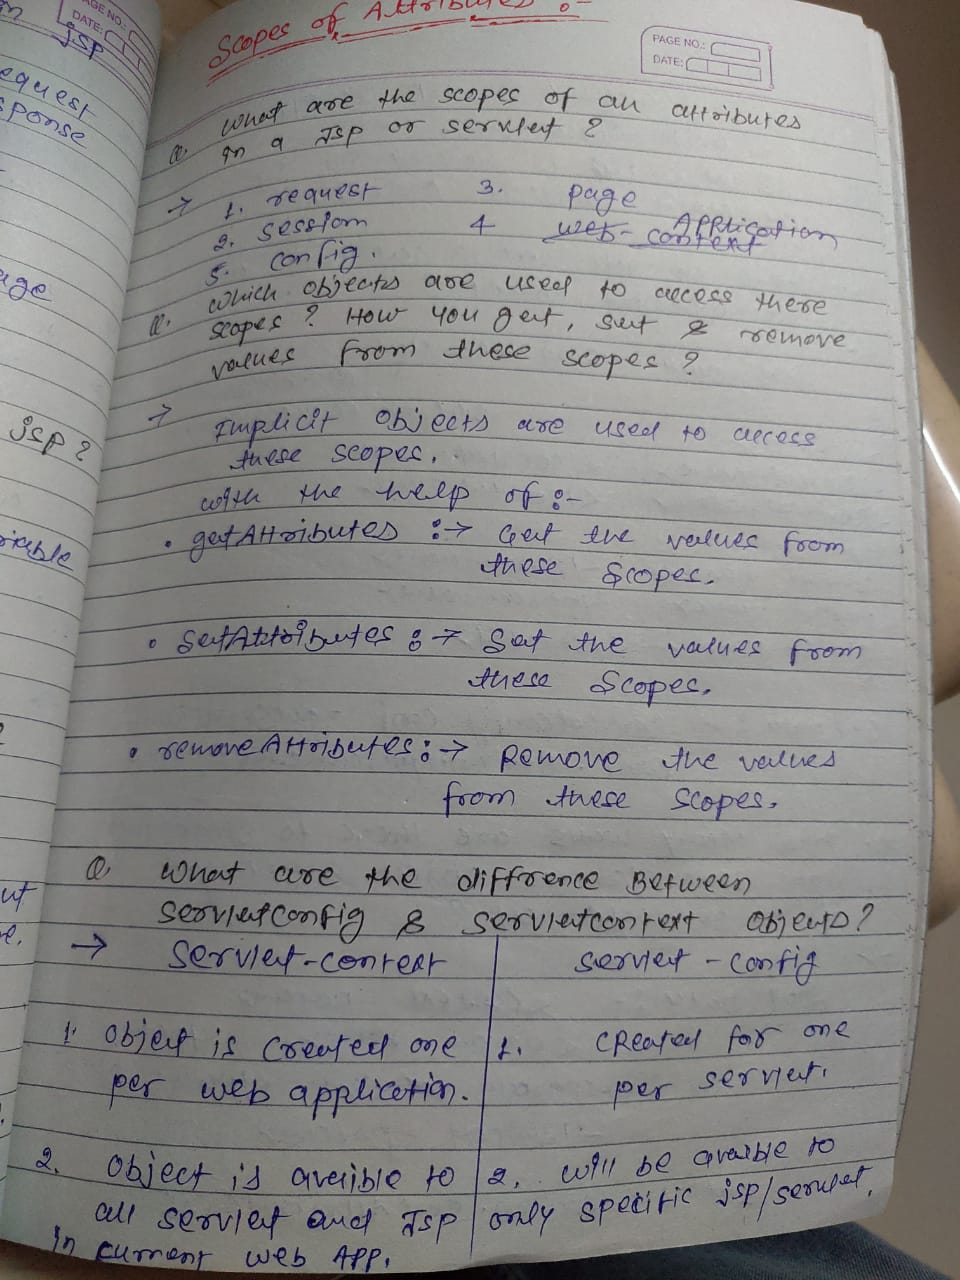 jsp
equest
sponse
age
jsp ?
riable
ut
e.
PAGE NO.:
DATE:
Scopes of Attributes :-
PAGE NO.:
DATE:
Q. What are the scopes of an attributes
in a JSP or servlet ?
→ 1. request 3. page
2. session 4 web-context Application
5. config.
Q. Which objects are used to access there
scopes ? How you get, set & remove
values from these scopes ?
→ Implicit objects are used to access
these scopes.
with the help of :-
• getAttributes :→ Get the values from
these scopes.
• SetAttributes :→ Set the values from
these scopes.
• removeAttributes :→ Remove the values
from these scopes.
Q. What are the diffrence Between
servletconfig & servletcontext objects?
→ Servlet-context servlet-config
1. object is created one 1. Created for one
per web application. per servlet.
2. object is avaible to 2. will be avaible to
all servlet and JSP only specific jsp/servlet.
in current web APP.